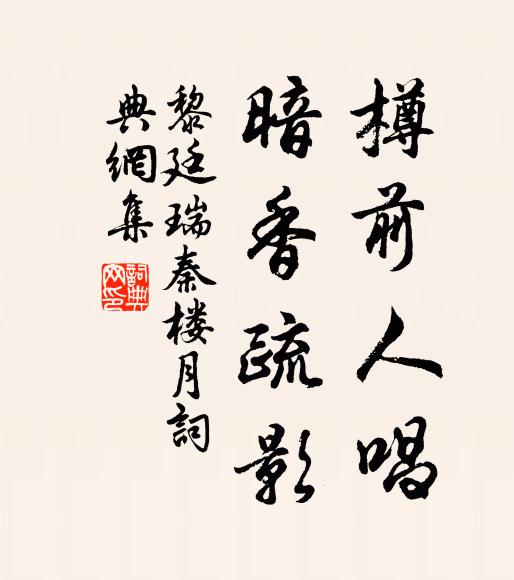 樽前人唱
暗香疏影
黎廷瑞秦楼月詞
典網集
詞典网印